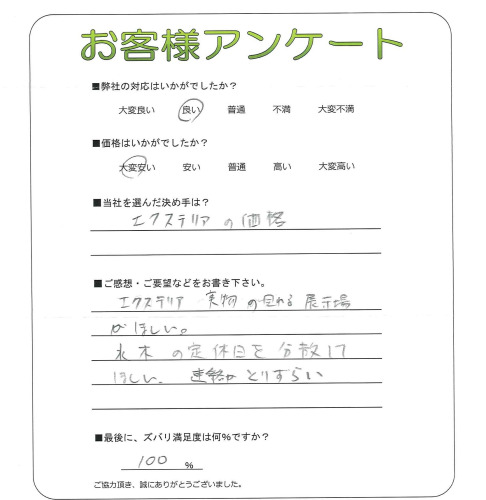 お客様アンケート
■弊社の対応はいかがでしたか？
大変良い 良い 普通 不満 大変不満
■価格はいかがでしたか？
大変安い 安い 普通 高い 大変高い
■当社を選んだ決め手は？
エクステリアの価格
■ご感想・ご要望などをお書き下さい。
エクステリア 実物の見れる展示場
がほしい。
水木の定休日を分散して
ほしい、連絡がとりずらい
■最後に、ズバリ満足度は何%ですか？
100 %
ご協力頂き、誠にありがとうございました。